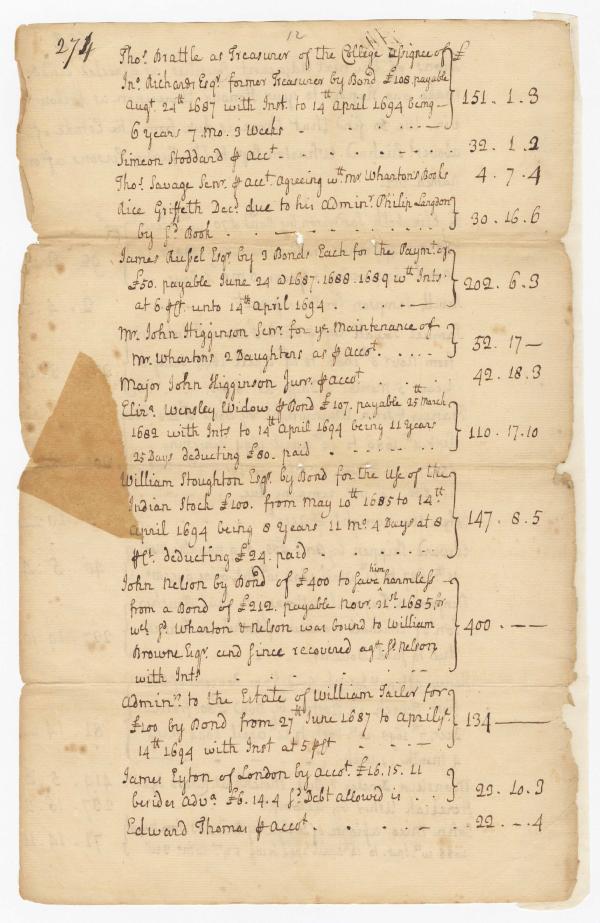 274
12
Thos. Brattle as Treasurer of the College Assignee of £
Jno. Richards Esqr. former Treasurer by Bond £108. payable
Augt. 24th 1687 with Inst. to 14th April 1694 being - 151. 1. 3
6 years 7. mo. 3 Weeks
Simeon Stoddard ⅌ Acct. 32. 1. 2
Thos. Savage Senr. ⅌ Acct. agreeing wth. mr. Wharton's Books 4. 7. 4
Rice Griffeth Decd. due to his Adminr. Philip Langdon
by sd. Book 30. 16. 6
James Russel Esqr. by 3 Bonds Each for the Paymt. of
£50. payable June 24 @ 1687. 1688. 1689 wth Ints. 202. 6. 3
at 6 ⅌Ct. unto 14th April 1694
Mr. John Higginson Senr. for ye. Maintenance of
Mr. Wharton's 2 Daughters as ⅌ Accot. 52. 17 —
Major John Higginson Junr. ⅌ Accot. 42. 18. 3
Elizr. Winsley Widow ⅌ Bond £107. payable 25th March
1682 with Ints to 14th April 1694 being 11 Years 110. 17. 10
25 Days deducting £80. paid
William Stoughton Esqr. by Bond for the Use of the
Indian Stock £100. from may 10th 1685 to 14th.
April 1694 being 8 Years 11 Mo. 4 Days at 8 147. 8. 5
⅌Ct. deducting £24. paid
John Nelson by Bond of £400 to save him harmless
from a Bond of £212. payable Novr. 21st. 1685 for
wch sd. Wharton & Nelson was bound to William 400. — —
Browne Esqr. and since recovered agt. sd. Nelson
with Ints
Adminrs. to the Estate of William Tailer for
£100 by Bond from 27th June 1687 to April ye. 134 —
14th 1694 with Inst at 5 ⅌Ct
James Eyton of London by Accot. £16. 15. 11
besides Adva. £6. 14. 4 sd. Debt allowed is 23. 10. 3
Edward Thomas ⅌ Accot. 22. – . 4